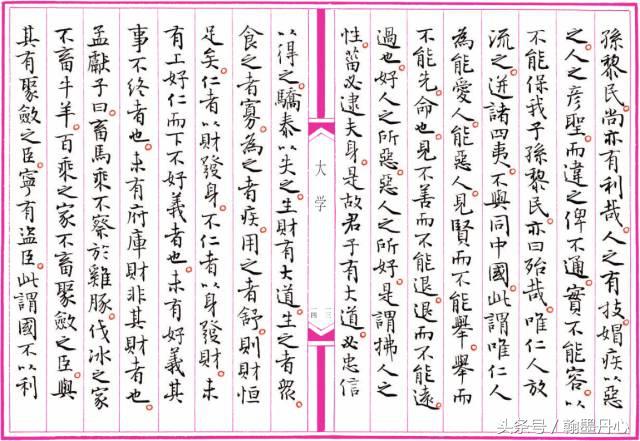 孫黎民尚亦有利哉。人之有技媢疾以惡
之。人之彦聖。而違之俾不通。實不能容。以
不能保我子孫黎民。亦曰殆哉。唯仁人放
流之。迸諸四夷。不與同中國。此謂唯仁人
為能愛人。能惡人。見賢而不能舉。舉而
不能先。命也。見不善而不能退。退而不能遠。
過也。好人之所惡。惡人之所好。是謂拂人之
性。菑必逮夫身。是故君子有大道。必忠信
大学
一三
一四
以得之。驕泰以失之。生財有大道。生之者眾。
食之者寡。為之者疾。用之者舒。則財恒
足矣。仁者以財發身。不仁者以身發財。未
有上好仁而下不好義者也。未有好義其
事不終者也。未有府庫財非其財者也。
孟獻子曰。畜馬乘不察於雞豚。伐冰之家
不畜牛羊。百乘之家不畜聚斂之臣。與
其有聚斂之臣。寧有盜臣。此謂國不以利
头条号/翰墨丹心